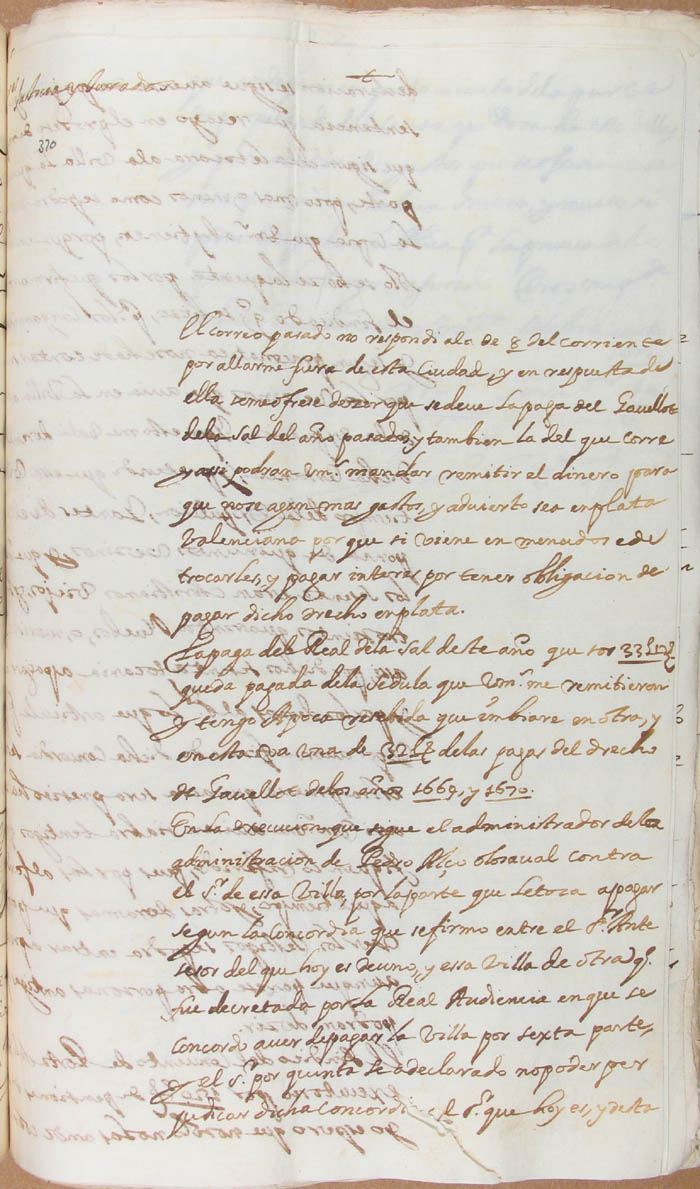 Jurados
370
El correo pasado no respondi ala de 8 del corriente
por allarme fuera de esta Ciudad, y en respuesta de
ella se me ofrese dezir que se deve la paga del Gavellot
dela sal del año pasado, y tambien la del que corre
y assi podran Vms. mandar remitir el dinero para
que no se agan mas gastos, y advierto sea en plata
Valenciana por que si viene en menudos e de
trocarles, y pagar interes por tener obligacion de
pagar dicho drecho en plata.
La paga del Real dela sal deste año que son 33
queda pagada dela sedula que Vms. me remitieron
y tengo Apoca resebida que imbiare en otra, y
en esta va una de 32 delas pagas del drecho
de Gavellot delos años 1669, y 1670.
En la execucion que sigue el administrador de la
administracion de Pedro contra
el Sr. de essa Villa, por la parte que le toca a pagar
segun la Concordia que se firmo entre el Sr. Ante
sesor del que hoy es de uno, y essa Villa de otra q.
fue decretada por la Real Audiencia en que se
concordo aver de pagar la Villa por sexta parte,
y el Sr. por quinta se a declarado no poder per
judicar dicha Concordia el Sr. que hoy es, y desta